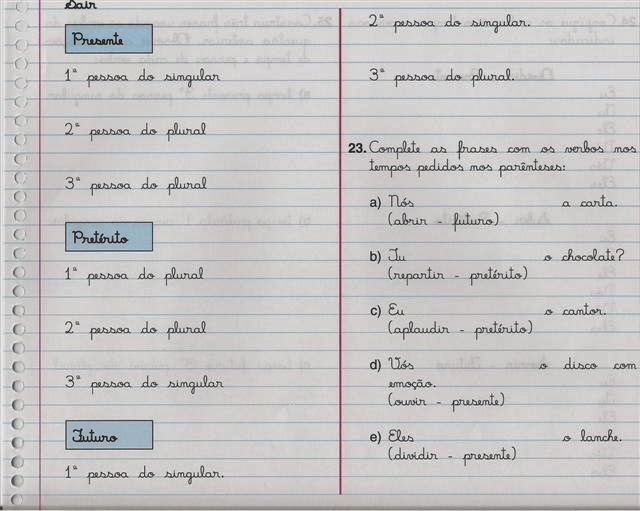 Sair
Presente
1ª pessoa do singular
2ª pessoa do plural
3ª pessoa do plural
Pretérito
1ª pessoa do plural
2ª pessoa do plural
3ª pessoa do singular
Futuro
1ª pessoa do singular.
2ª pessoa do singular.
3ª pessoa do plural.
23. Complete as frases com os verbos nos
tempos pedidos nos parênteses:
a) Nós a carta.
(abrir - futuro)
b) Tu o chocolate?
(repartir - pretérito)
c) Eu o cantor.
(aplaudir - pretérito)
d) Vós o disco com
emoção.
(ouvir - presente)
e) Eles o lanche.
(dividir - presente)